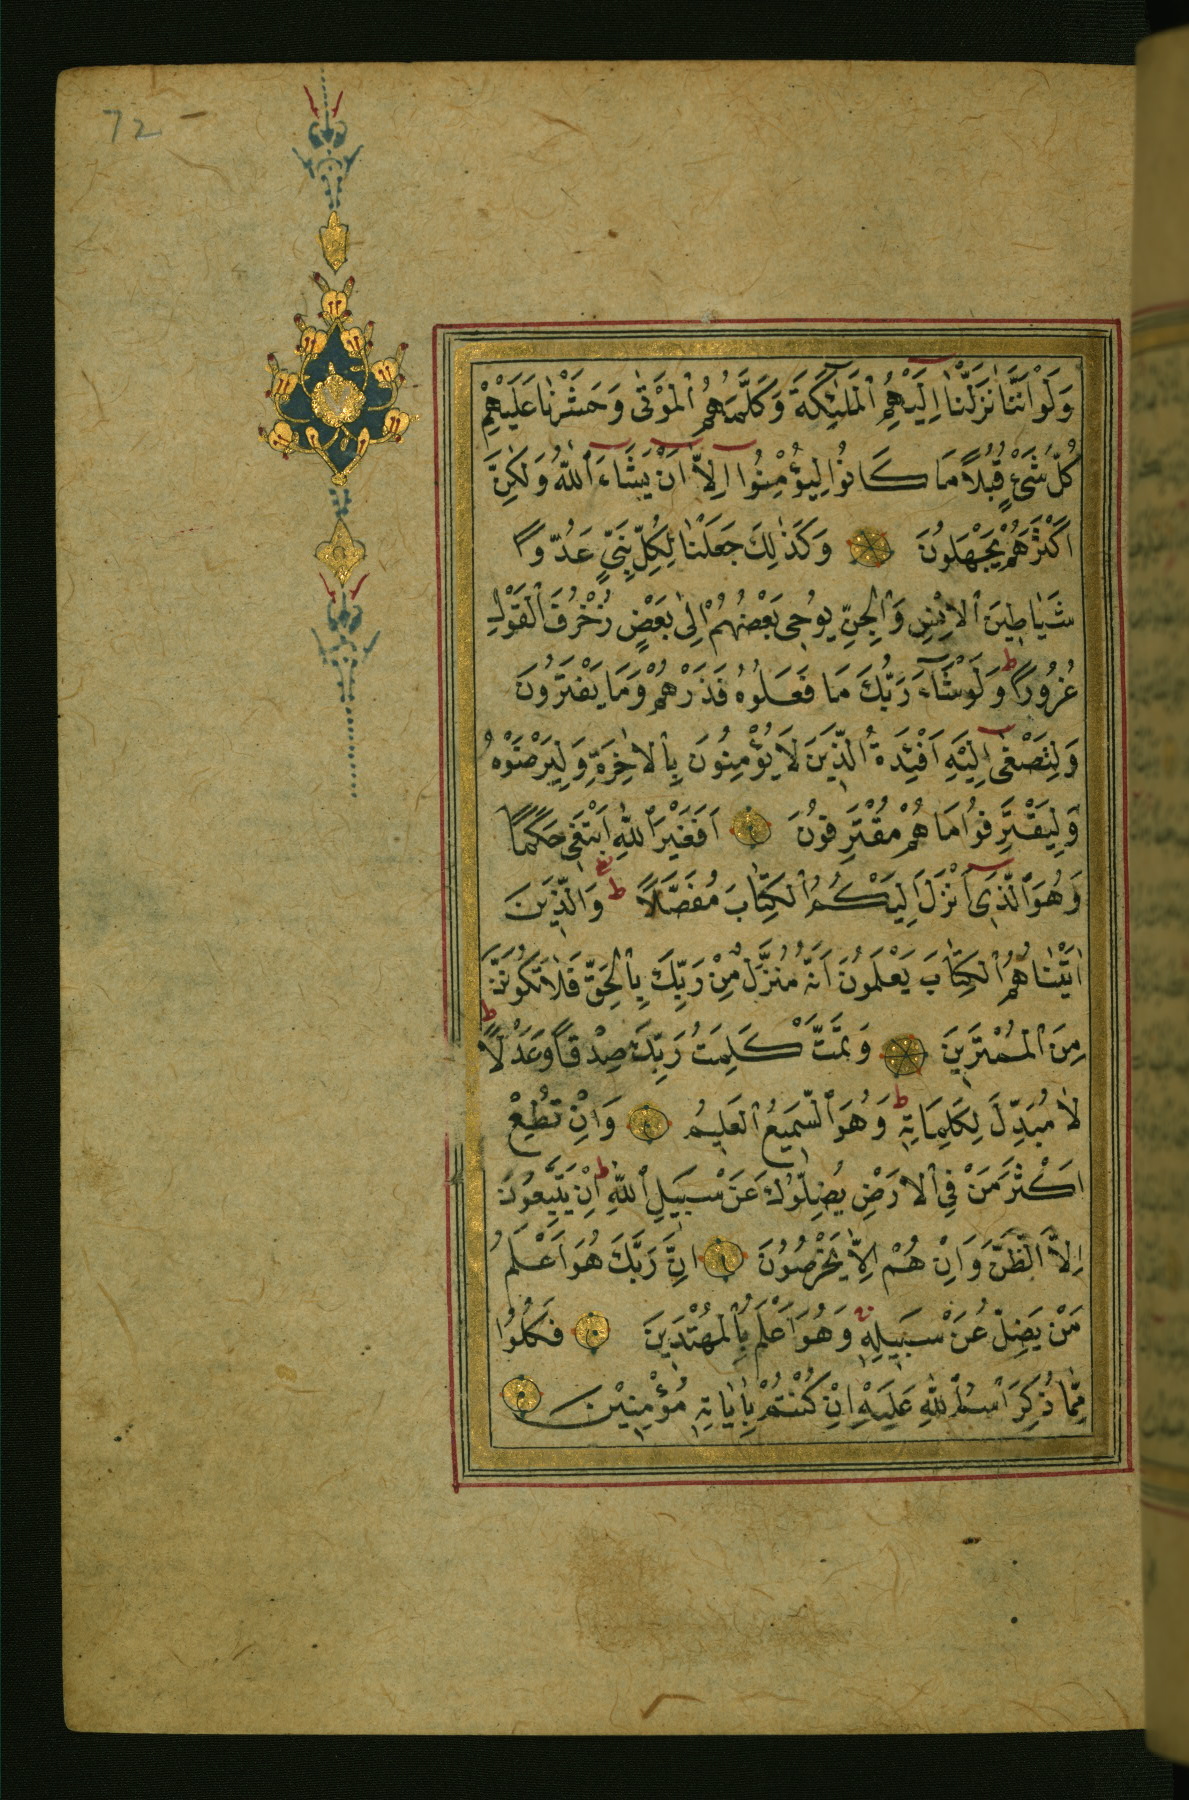 72
وَلَوْ اَنَّنَا نَزَّلْنَا اِلَيْهِمُ الْمَلٰئِكَةَ وَكَلَّمَهُمُ الْمَوْتٰى وَحَشَرْنَا عَلَيْهِمْ
كُلَّ شَىْءٍ قُبُلًا مَا كَانُوا لِيُؤْمِنُوا اِلَّا اَنْ يَشَاءَ اللّٰهُ وَلٰكِنَّ
اَكْثَرَهُمْ يَجْهَلُونَ وَكَذٰلِكَ جَعَلْنَا لِكُلِّ نَبِىٍّ عَدُوًّا
شَيَاطِينَ الْاِنْسِ وَالْجِنِّ يُوحِى بَعْضُهُمْ اِلٰى بَعْضٍ زُخْرُفَ الْقَوْلِ
غُرُورًا ط وَلَوْ شَآءَ رَبُّكَ مَا فَعَلُوهُ فَذَرْهُمْ وَمَا يَفْتَرُونَ
وَلِتَصْغٰى اِلَيْهِ اَفْئِدَةُ الَّذِينَ لَا يُؤْمِنُونَ بِالْاٰخِرَةِ وَلِيَرْضَوْهُ
وَلِيَقْتَرِفُوا مَا هُمْ مُقْتَرِفُونَ اَفَغَيْرَ اللّٰهِ اَبْتَغِى حَكَمًا
وَهُوَ الَّذِى اَنْزَلَ اِلَيْكُمُ الْكِتَابَ مُفَصَّلًا ط وَالَّذِينَ
اٰتَيْنَاهُمُ الْكِتَابَ يَعْلَمُونَ اَنَّهُ مُنَزَّلٌ مِنْ رَبِّكَ بِالْحَقِّ فَلَا تَكُونَنَّ
مِنَ الْمُمْتَرِينَ وَتَمَّتْ كَلِمَتُ رَبِّكَ صِدْقًا وَعَدْلًا ط
لَا مُبَدِّلَ لِكَلِمَاتِهِ ط وَهُوَ السَّمِيعُ الْعَلِيمُ وَاِنْ تُطِعْ
اَكْثَرَ مَنْ فِى الْاَرْضِ يُضِلُّوكَ عَنْ سَبِيلِ اللّٰهِ ط اِنْ يَتَّبِعُونَ
اِلَّا الظَّنَّ وَاِنْ هُمْ اِلَّا يَخْرُصُونَ اِنَّ رَبَّكَ هُوَ اَعْلَمُ
مَنْ يَضِلُّ عَنْ سَبِيلِهِ وَهُوَ اَعْلَمُ بِالْمُهْتَدِينَ فَكُلُوا
مِمَّا ذُكِرَ اسْمُ اللّٰهِ عَلَيْهِ اِنْ كُنْتُمْ بِاٰيَاتِهِ مُؤْمِنِينَ